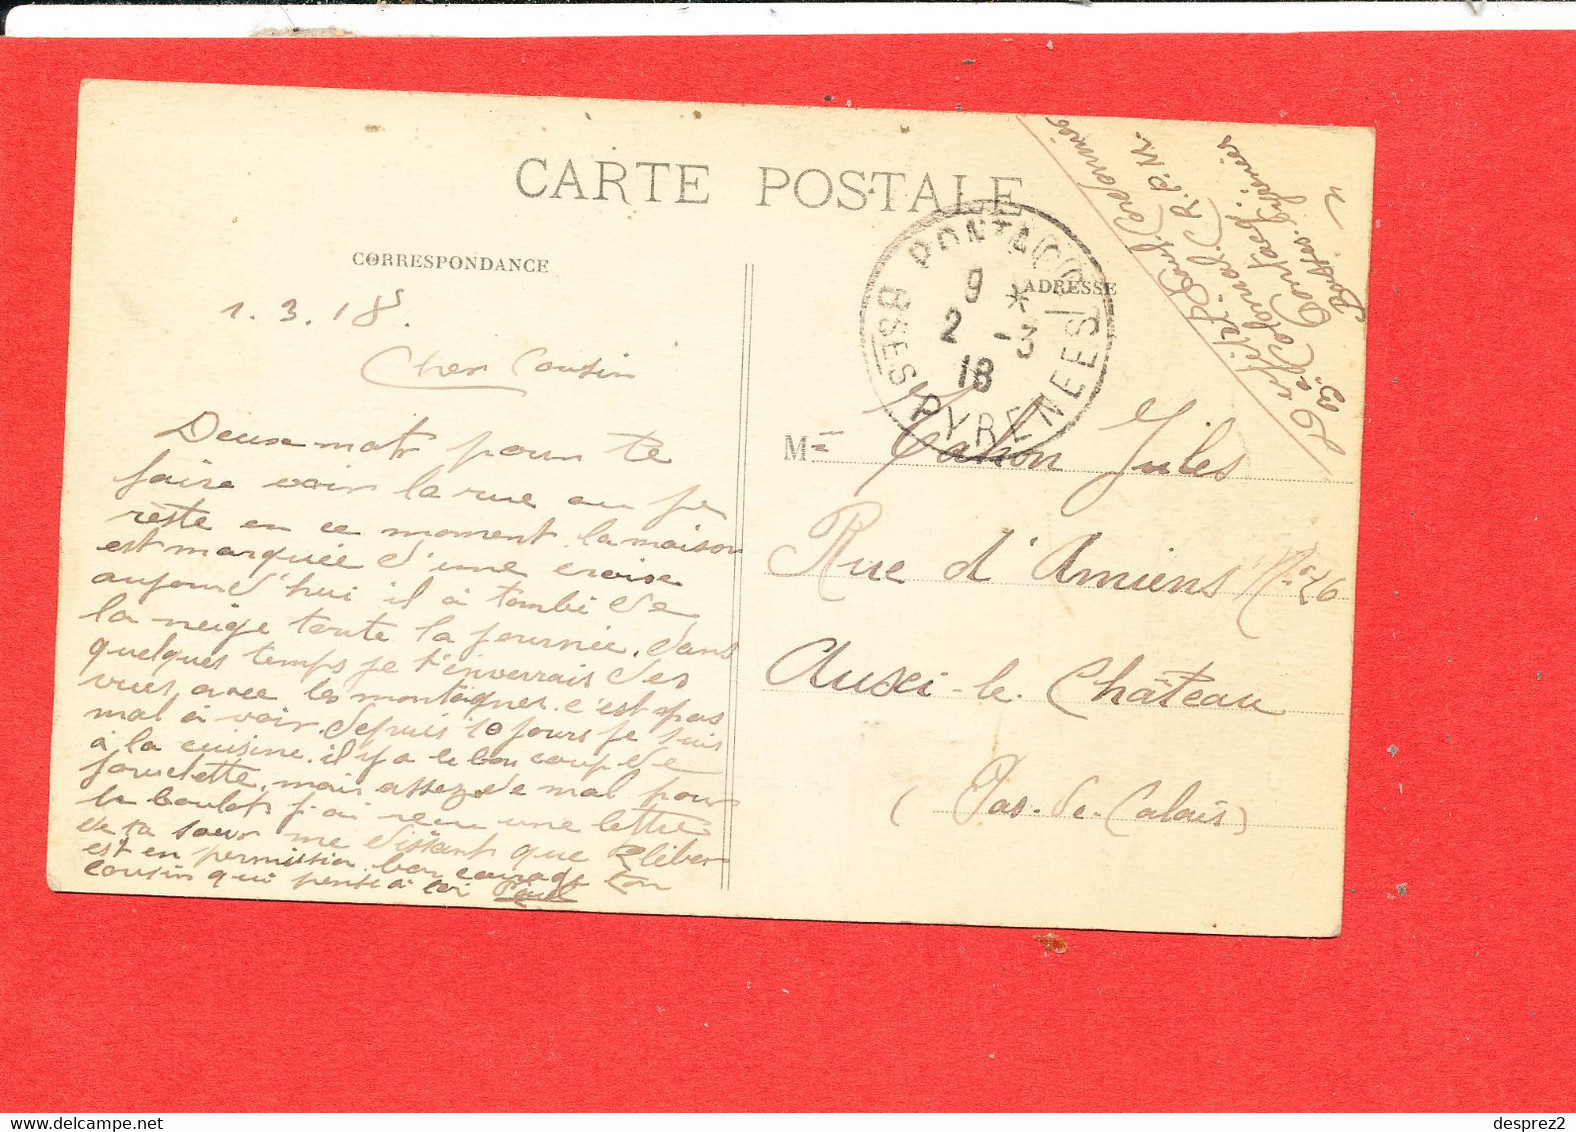 CARTE POSTALE
CORRESPONDANCE
ADRESSE
1.3.18
Cher Cousin
Deux mots pour te
faire voir la rue ou je
reste en ce moment. la maison
est marquée d'une croise
aujourd'hui il à tombé de
la neige toute la journée. dans
quelques temps je t'enverrais des
vues avec les montagnes. c'est pas
mal à voir. depuis 10 jours je suis
à la cuisine. il y a le bon coup de
fourchette. mais assez de mal pour
le boulot. j'ai reçu une lettre
de ta sœur me disant que Kléber
est en permission. bon courage ton
cousin qui pense à toi Paul
PONTACQ
9 *
2 -3
18
BSES PYRENEES
Mr Cahon Jules
Rue d'Amiens No 26
Auxi-le-Château
(Pas-de-Calais)
Paul
Colonial C.R.P.N.
Pontacq
Basses-Pyrénées
desprez2